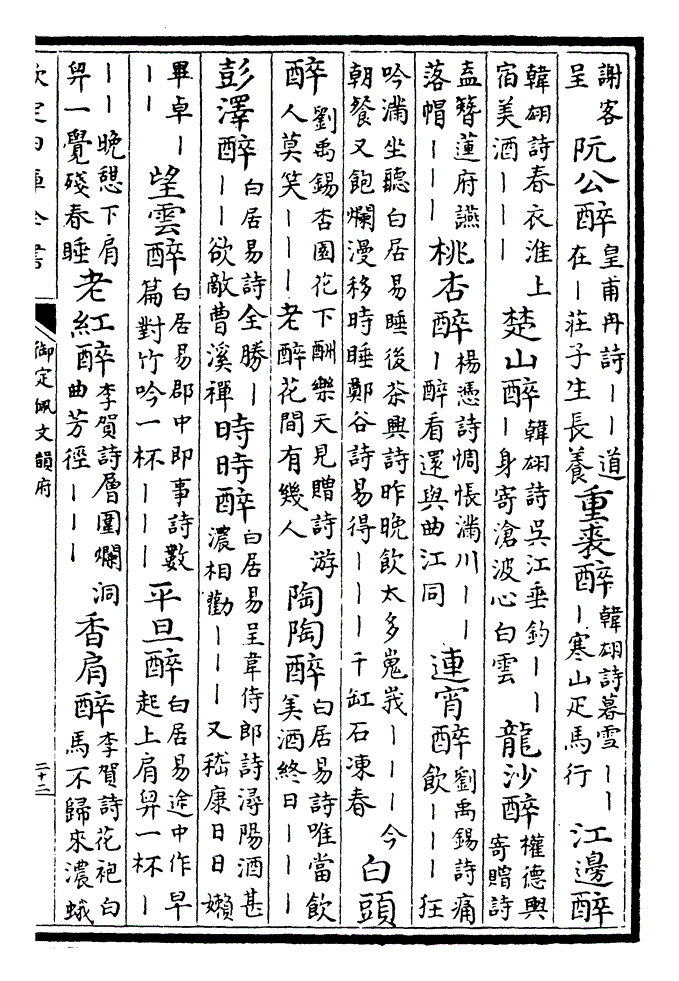 謝客
呈
阮公醉
皇甫冉詩丨丨道
在丨莊子生長養
重裘醉
韓翃詩暮雪丨丨
丨寒山疋馬行
江邊醉
韓翃詩春衣淮上
宿美酒丨丨丨
楚山醉
韓翃詩吳江垂釣丨丨
丨身寄滄波心白雲
龍沙醉
權德輿
寄贈詩
盍簪蓮府讌
落帽丨丨丨
桃杏醉
楊憑詩惆悵滿川丨丨
丨醉看還與曲江同
連宵醉
劉禹錫詩痛
飲丨丨丨狂
吟滿坐聽白居易睡後茶興詩昨晚飲太多嵬峩丨丨丨今
朝餐又飽爛漫移時睡鄭谷詩易得丨丨丨千缸石凍春
白頭
醉
劉禹錫杏園花下酬樂天見贈詩游
人莫笑丨丨丨老醉花間有幾人
陶陶醉
白居易詩唯當飲
美酒終日丨丨丨
彭澤醉
白居易詩全勝丨
丨丨欲敵曹溪禪
時時醉
白居易呈韋侍郎詩潯陽酒甚
濃相勸丨丨丨又嵇康日日嬾
畢卓丨
丨丨
望雲醉
白居易郡中即事詩數
篇對竹吟一杯丨丨丨
平旦醉
白居易途中作早
起上肩舁一杯丨
丨丨晚憩下肩
舁一覺殘春睡
老紅醉
李賀詩層圍爛洞
曲芳徑丨丨丨
香肩醉
李賀詩花袍白
馬不歸來濃蛾
欽定四庫全書
御定佩文韻府
二十二